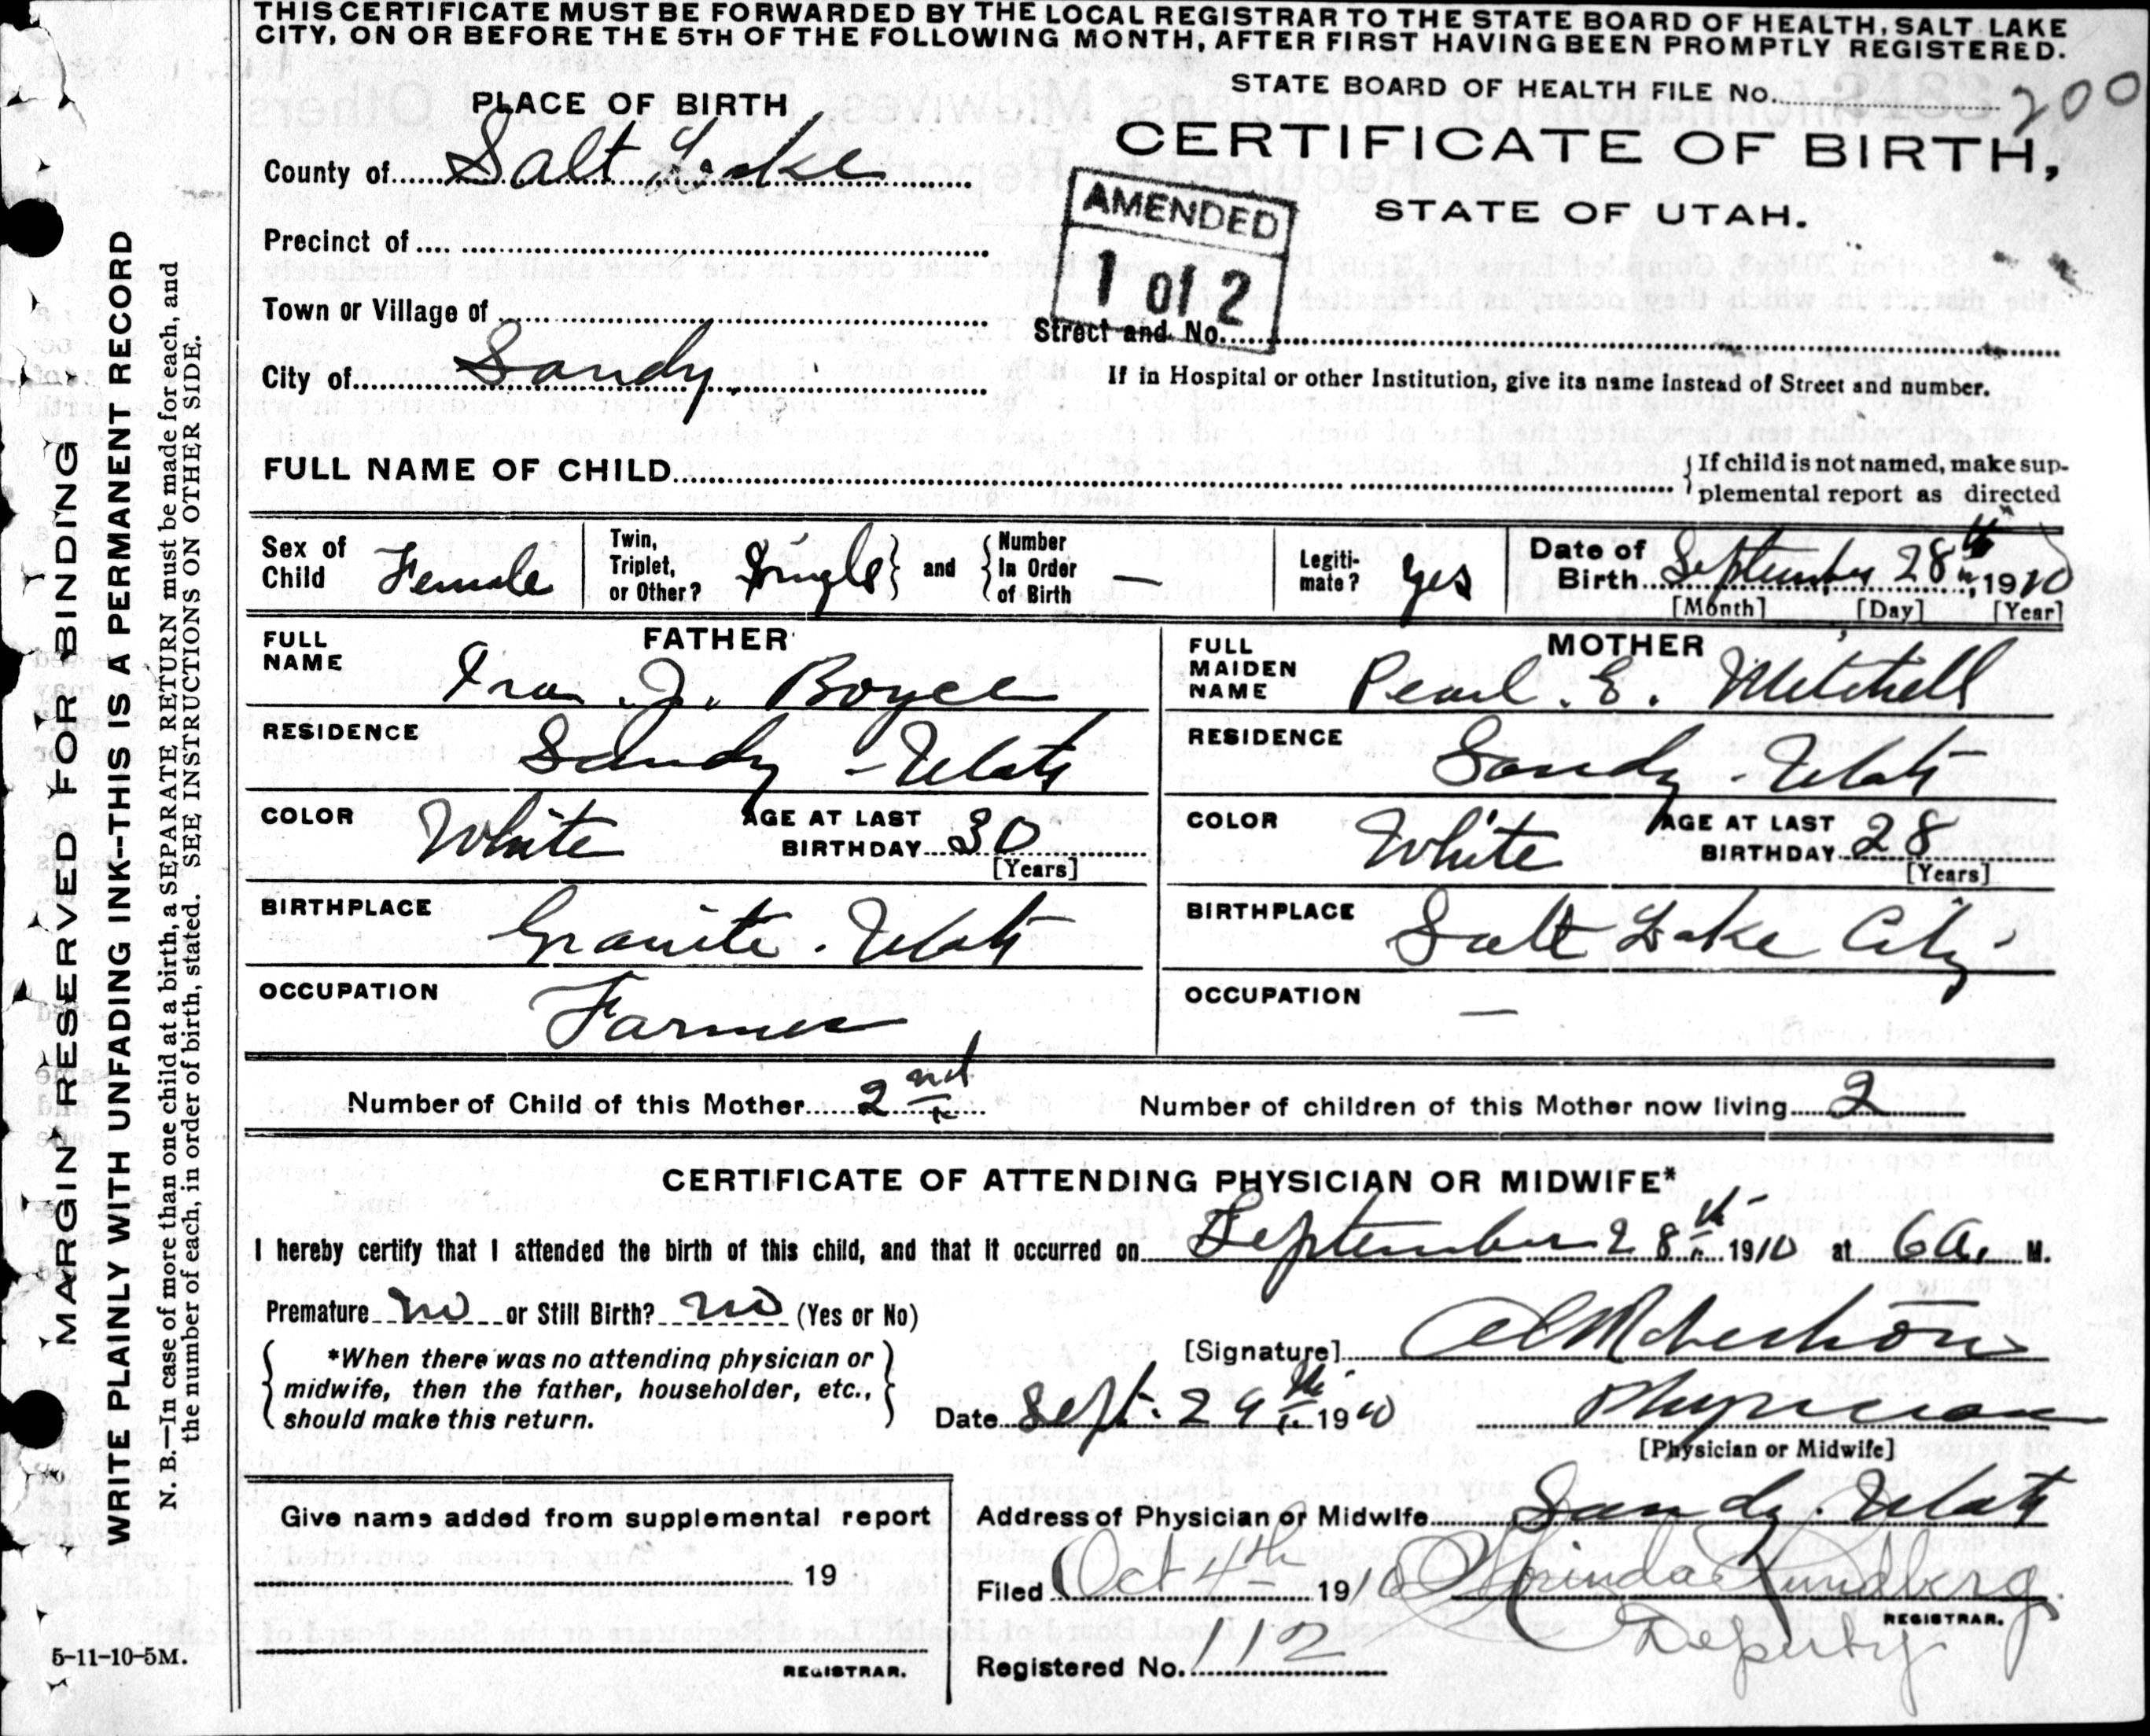 THIS CERTIFICATE MUST BE FORWARDED BY THE LOCAL REGISTRAR TO THE STATE BOARD OF HEALTH, SALT LAKE
CITY, ON OR BEFORE THE 5TH OF THE FOLLOWING MONTH, AFTER FIRST HAVING BEEN PROMPTLY REGISTERED.
STATE BOARD OF HEALTH FILE No. 200
PLACE OF BIRTH
CERTIFICATE OF BIRTH,
STATE OF UTAH.
County of Salt Lake
AMENDED
1 of 2
Precinct of
Town or Village of
Street and No.
City of Sandy.
If in Hospital or other Institution, give its name instead of Street and number.
FULL NAME OF CHILD
If child is not named, make sup-
plemental report as directed
Sex of Child Female
Twin, Triplet, or Other? Single and Number In Order of Birth —
Legiti-mate? yes
Date of Birth September 28th 1910
[Month] [Day] [Year]
FATHER
FULL NAME Ira J. Boyce
RESIDENCE Sandy - Utah
COLOR White AGE AT LAST BIRTHDAY 30
[Years]
BIRTHPLACE Granite. Utah
OCCUPATION Farmer
MOTHER
FULL MAIDEN NAME Pearl. E. Mitchell
RESIDENCE Sandy - Utah
COLOR White AGE AT LAST BIRTHDAY 28
[Years]
BIRTHPLACE Salt Lake City
OCCUPATION —
Number of Child of this Mother 2nd Number of children of this Mother now living 2
CERTIFICATE OF ATTENDING PHYSICIAN OR MIDWIFE*
I hereby certify that I attended the birth of this child, and that it occurred on September 28th 1910 at 6 a. M.
Premature no or Still Birth? no (Yes or No)
*When there was no attending physician or
midwife, then the father, householder, etc.,
should make this return.
[Signature]
Date Sept. 29th 1910 Physician
[Physician or Midwife]
Give name added from supplemental report
19
REGISTRAR.
Address of Physician or Midwife Sandy. Utah
Filed Oct 4th 1910 Lundberg
REGISTRAR.
Deputy
Registered No. 112
5-11-10-5M.
MARGIN RESERVED FOR BINDING
WRITE PLAINLY WITH UNFADING INK--THIS IS A PERMANENT RECORD
N. B.—In case of more than one child at a birth, a SEPARATE RETURN must be made for each, and
the number of each, in order of birth, stated. SEE INSTRUCTIONS ON OTHER SIDE.